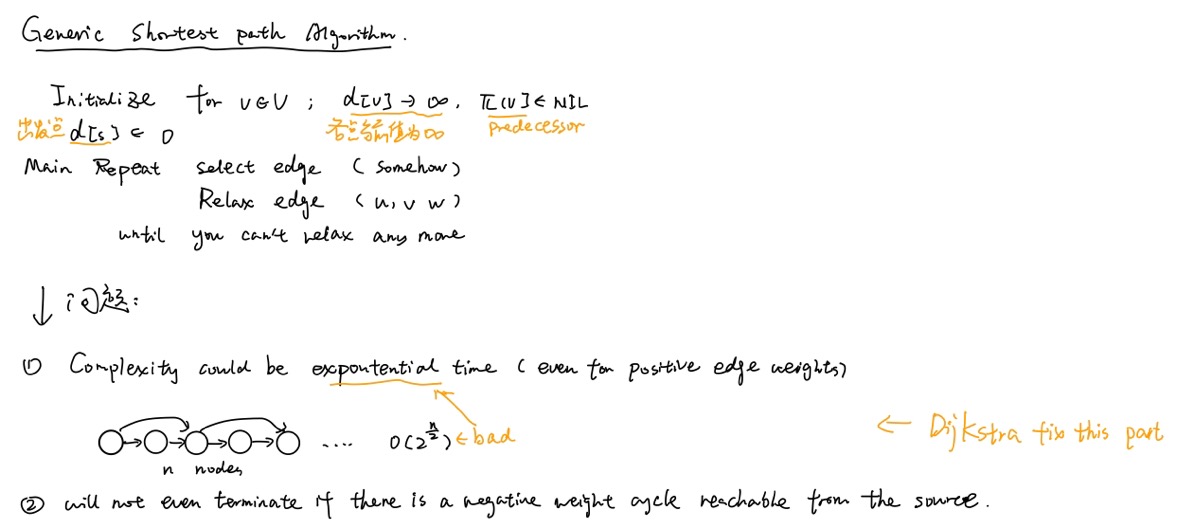 Generic Shortest path Algorithm.
Initialize for v∈V ; d[v] → ∞ . π[v] ∈ NIL
出发点 d[s] ∈ 0 各点当前值为∞ predecessor
Main Repeat select edge (somehow)
Relax edge (u, v w)
until you can't relax any more
↓ 问题:
① Complexity could be expontential time (even for positive edge weights)
.... O(2^(n/2)) ← bad
← Dijkstra fix this part
n nodes
② will not even terminate if there is a negative weight cycle reachable from the source.